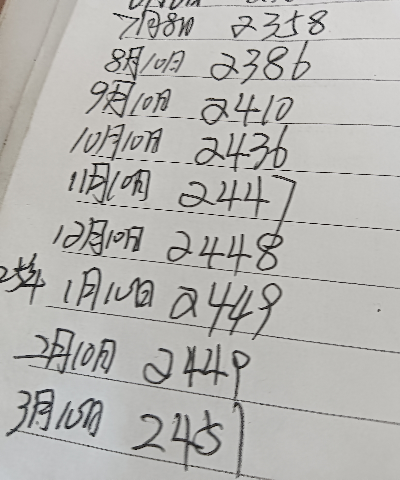 7月8日 2358
8月10日 2386
9月10日 2410
10月10日 2436
11月10日 2447
12月10日 2448
25年 1月10日 2449
二月10日 2449
3月10日 2451